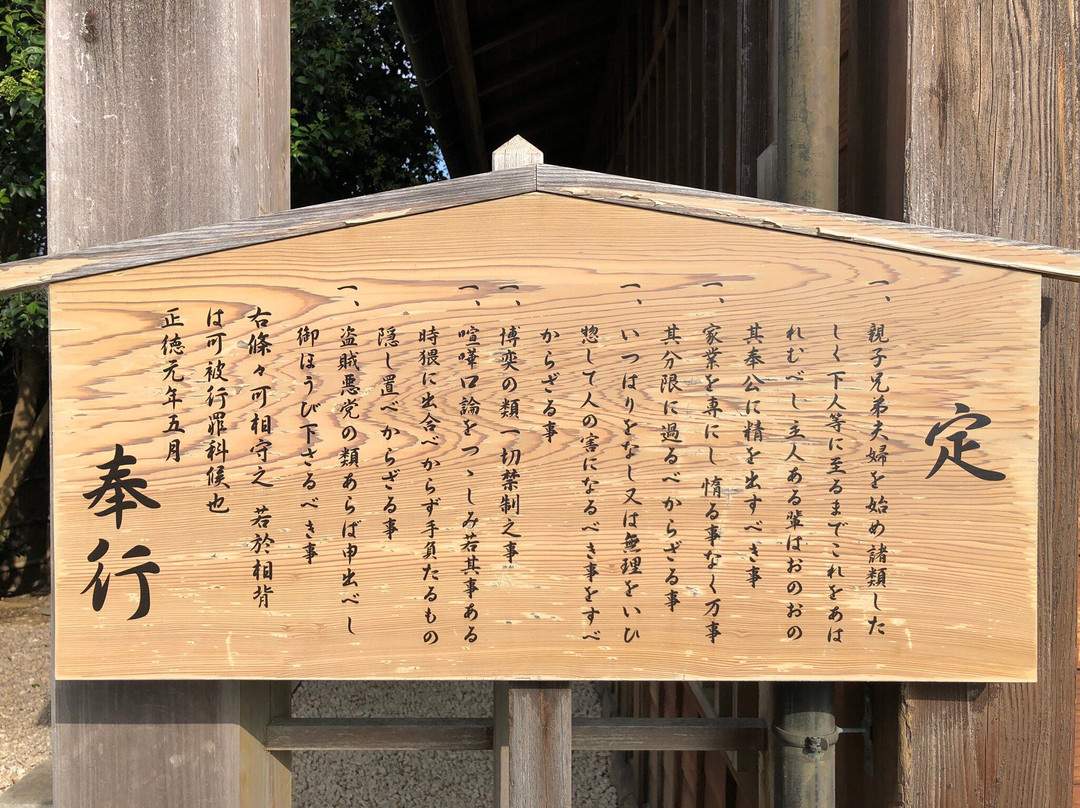 定
一、親子兄弟夫婦を始め諸類した
しく下人等に至るまでこれをあは
れむべし主人ある輩はおのおの
其奉公に精を出すべき事
一、家業を専にし惰る事なく万事
其分限に過るべからざる事
一、いつはりをなし又は無理をいひ
惣して人の害になるべき事をすべ
からざる事
一、博奕の類一切禁制之事
一、喧嘩口論をつゝしみ若其事ある
時猥に出合べからず手負たるもの
隠し置べからざる事
一、盗賊悪党の類あらば申出べし
御ほうび下さるべき事
右條々可相守之 若於相背
は可被行罪科候也
正徳元年五月
奉行